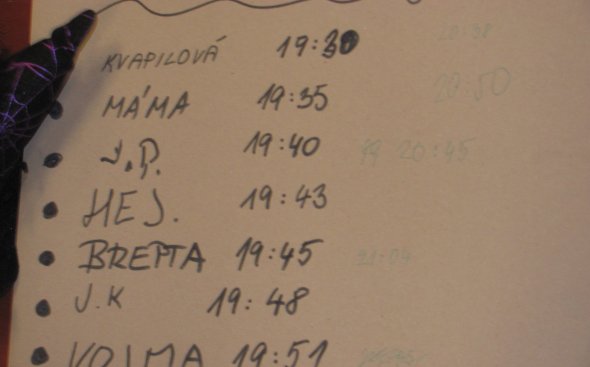 KVAPILOVÁ 19:30
MÁMA 19:35 20:50
J.P. 19:40 20:45
HEJ. 19:43
BREPTA 19:45 21:04
J.K 19:48
VOJMA 19:51